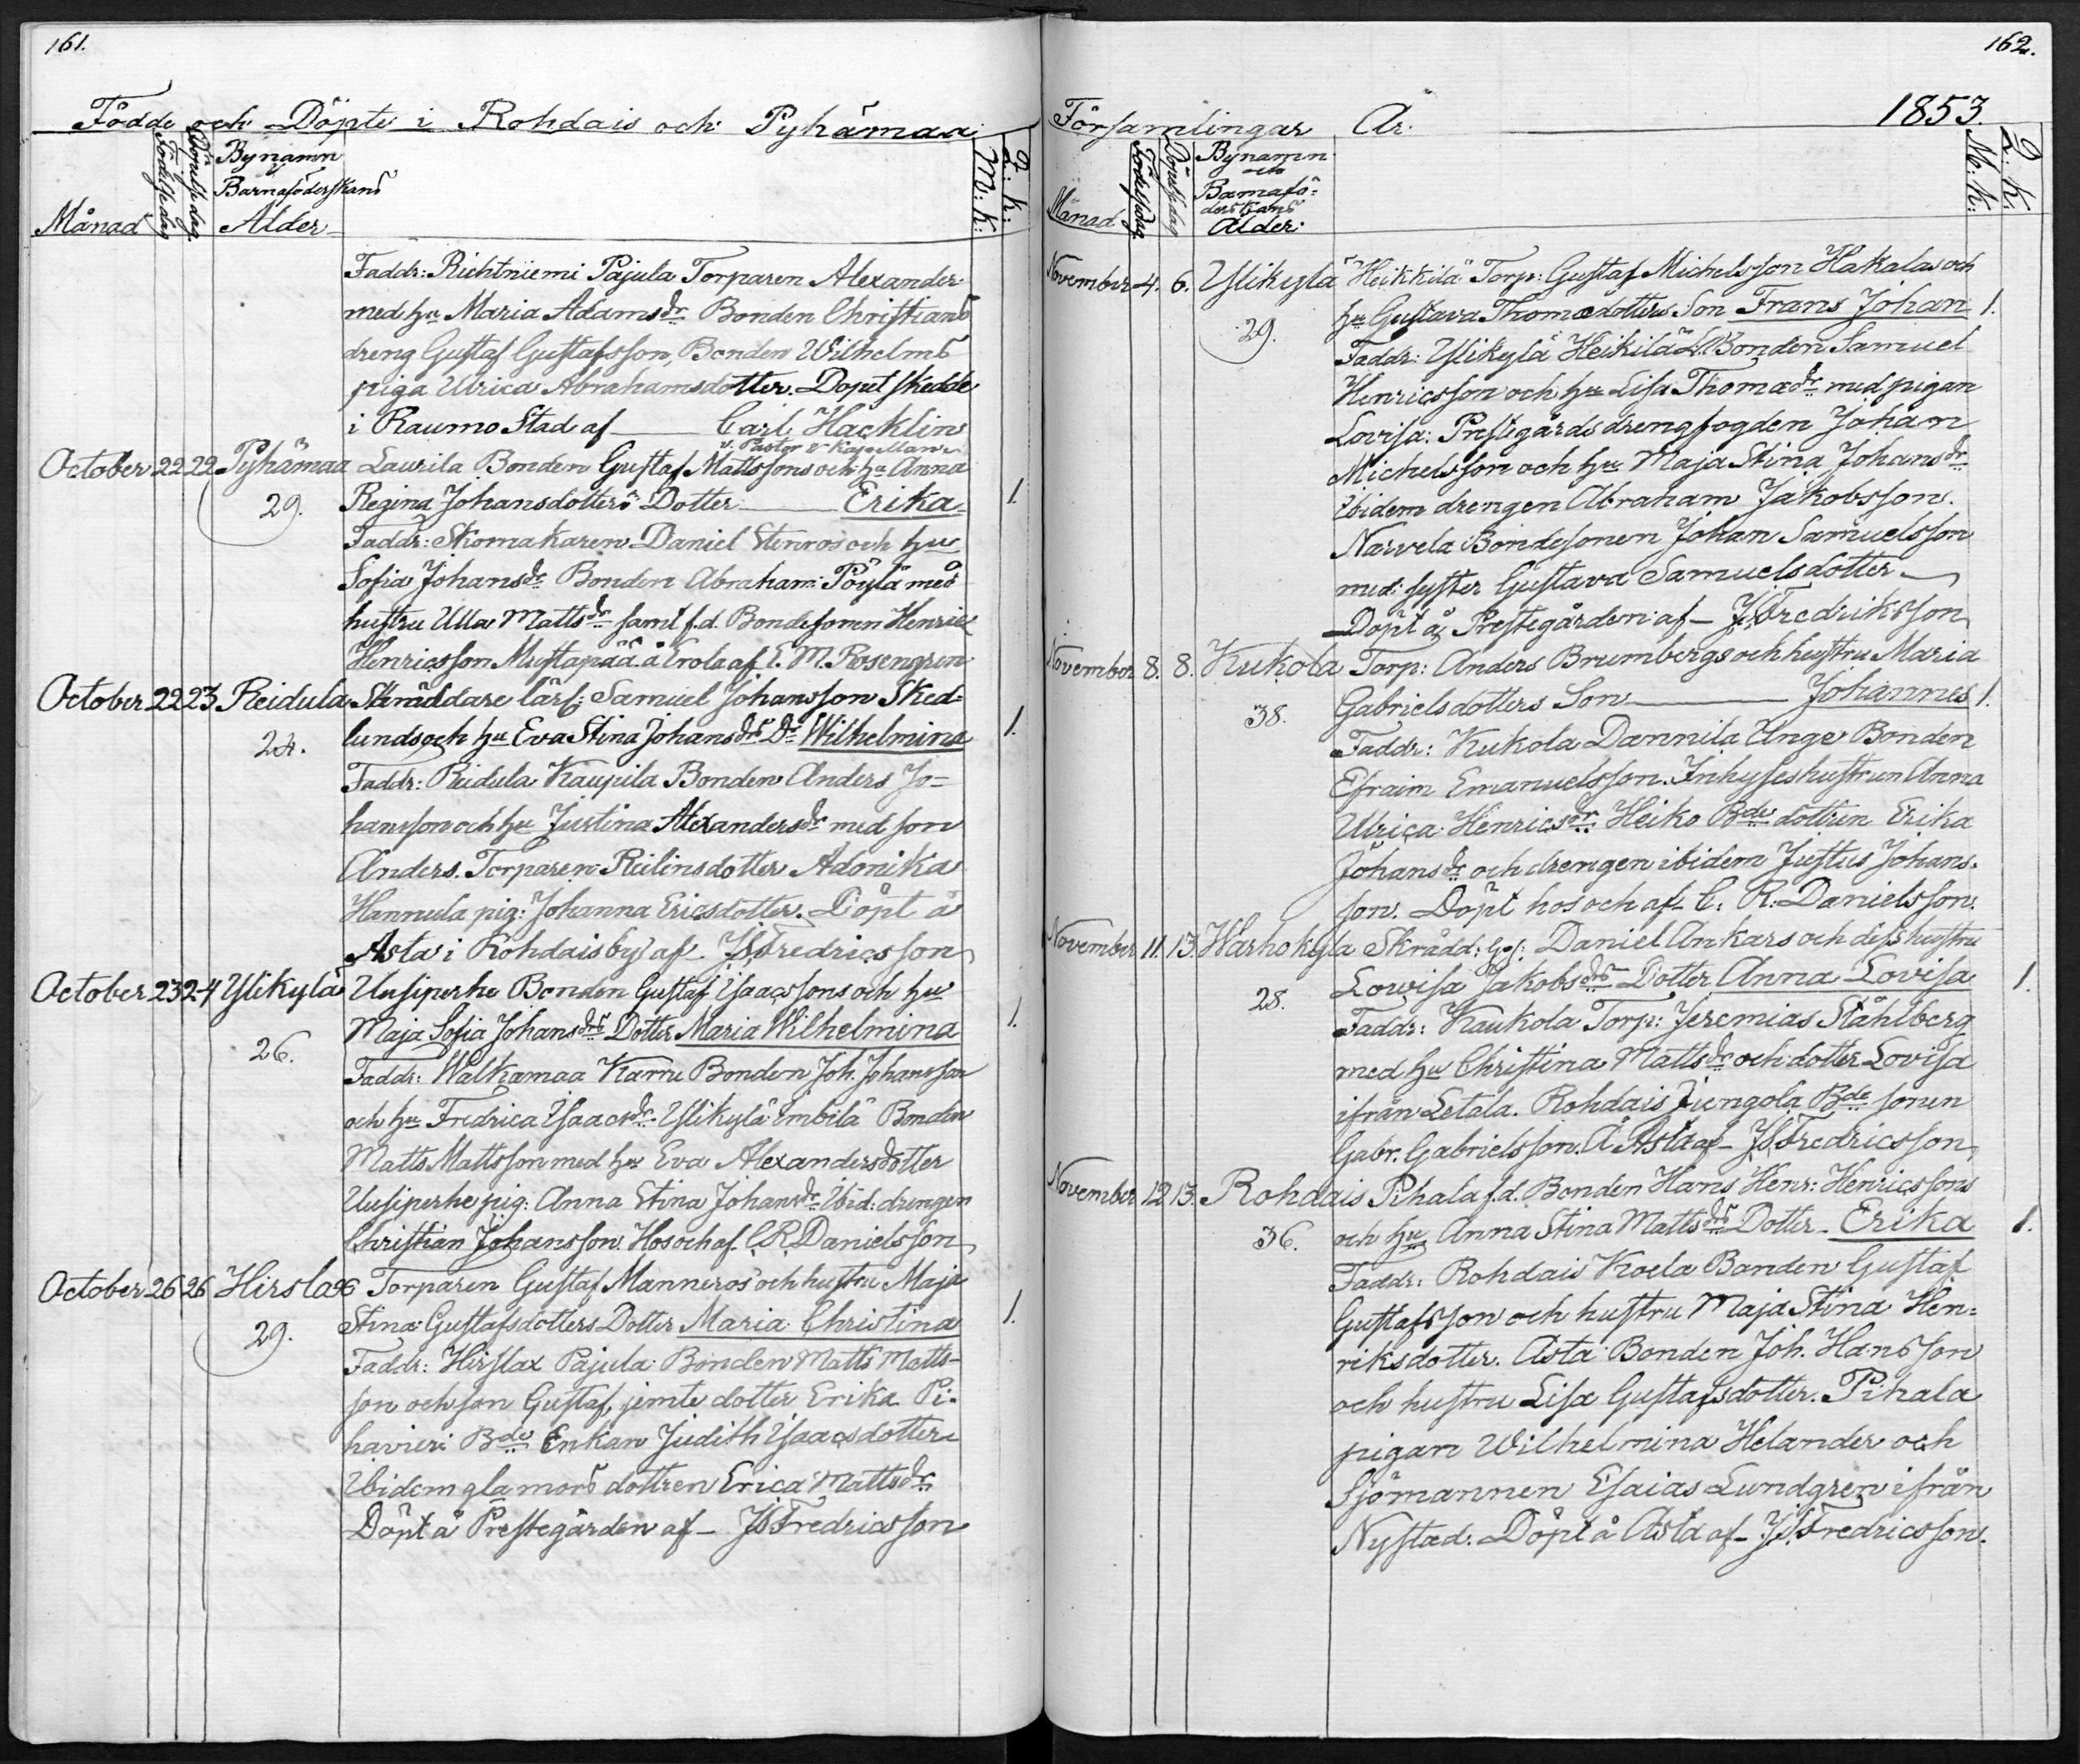 161.
Födde och Döpte i Rohdais och Pyhämaa
Månad
Födelsedag
Döpelsedag.
Bynamn
Barnaföderskans
Ålder
M: k:
Q: k:
Faddr: Richtniemi Pajula Torparen Alexander
med hu Maria Adamsdr Bonden Christians
dreng Gustaf Gustafsson, Bonden Wilhelms
piga Ulrica Abrahamsdotter. Dopet skedde
i Raumo Stad af Carl Hacklin
v. Pastor
October 22 22 Pyhämaa Laurila Bonden Gustaf Mattssons och hu Anna
29. Regina Johansdotters Dotter Erika. 1.
Faddr: Skomakaren Daniel Stenros och hu
Sofia Johansdr Bonden Abraham Pöylä med
hustru Ulla Mattsdr samt f.d. Bondesonen Henric
Henricsson Mustapää. å Erola af E. M. Rosengren
October 22 23 Reidula Skräddare lärl: Samuel Johansson Sked-
24. lunds och hu Eva Stina Johansdrs Dr Wilhelmina 1.
Faddr: Reidula Kaupila Bonden Anders Jo-
hansson och hu Justina Alexandersdr med son
Anders. Torparen Reilins dotter Adonika
Hannula pig: Johanna Ericsdotter. Döpt å
Asta i Rohdais by af JS Fredricsson
October 23 24 Ylikylä Uusiperhe Bonden Gustaf Isaacssons och hu
26. Maja Sofia Johansdrs Dotter Maria Wilhelmina 1.
Faddr: Walkamaa Karru Bonden Joh. Johansson
och hu Fredrica Isaacsdr. Ylikylä Embilä Bonden
Matts Mattsson med hu Eva Alexandersdotter
Uusiperhe pig: Anna Stina Johansdr Ibid: drengen
Christian Johansson. Hos och af C R Danielsson
October 26 26 Hirslax Torparen Gustaf Manneros och hustru Maja
29. Stina Gustafsdotters Dotter Maria Christina 1.
Faddr: Hirslax Pajula Bonden Matts Matts-
son och son Gustaf, jemte dotter Erika. Pi-
havieri Bde Enkan Judith Isaacsdotter
Ibidem gla mors dottren Erica Mattsdr
Döpt å Prestegården af JS Fredricsson
162.
Församlingar År. 1853.
Månad
Födelsedag.
Döpelsedag
Bynamn
och
Barnafö-
derskans
Ålder.
M: k:
Q: K:
November 4. 6. Ylikylä Heikkilä Torp: Gustaf Michelsson Hakalas och
29. hu Gustava Thomædotters Son Frans Johan 1.
Faddr: Ylikylä Heikilä Bonden Samuel
Henricsson och hu Lisa Thomædr med pigan
Lovisa: Prestegårds drengfogden Johan
Michelsson och hu Maja Stina Johansdr
Ibidem drengen Abraham Jakobsson.
Narvela Bondesonen Johan Samuelsson
med syster Gustava Samuelsdotter
Döpt å Prestegården af JS Fredriksson
November 8. 8. Kukola Torp: Anders Brumbergs och hustru Maria
38. Gabrielsdotters Son Johannes 1.
Faddr: Kukola Dannila Unge Bonden
Efraim Emanuelsson. Inhyseshustrun Anna
Ulrica Henricsdr Heiko Bde dottren Erika
Johansdr och drengen ibidem Justus Johans-
son. Döpt hos och af C. R. Danielsson.
November 11. 13. Warhokylä Skrädd: Ges: Daniel Ankars och dess hustru
28. Lowisa Jakobsdrs Dotter Anna Lovisa 1.
Faddr: Kaukola Torp: Jeremias Ståhlberg
med hu Christina Mattsdr och dotter Lovisa
ifrån Letala. Rohdais Jungola Bde sonen
Gabr. Gabrielsson. Å Asta af JS Fredricsson
November 12 13. Rohdais Pihala f.d. Bonden Hans Henr: Henricssons
36. och hu Anna Stina Mattsdrs Dotter Erika 1.
Faddr: Rohdais Koela Bonden Gustaf
Gustafsson och hustru Maja Stina Hen-
riksdotter. Asta Bonden Joh. Hansson
och hustru Lisa Gustafsdotter. Pihala
pigan Wilhelmina Helander och
Sjömannen Esaias Lundgren ifrån
Nystad. Döpt å Asta af JS Fredricsson.